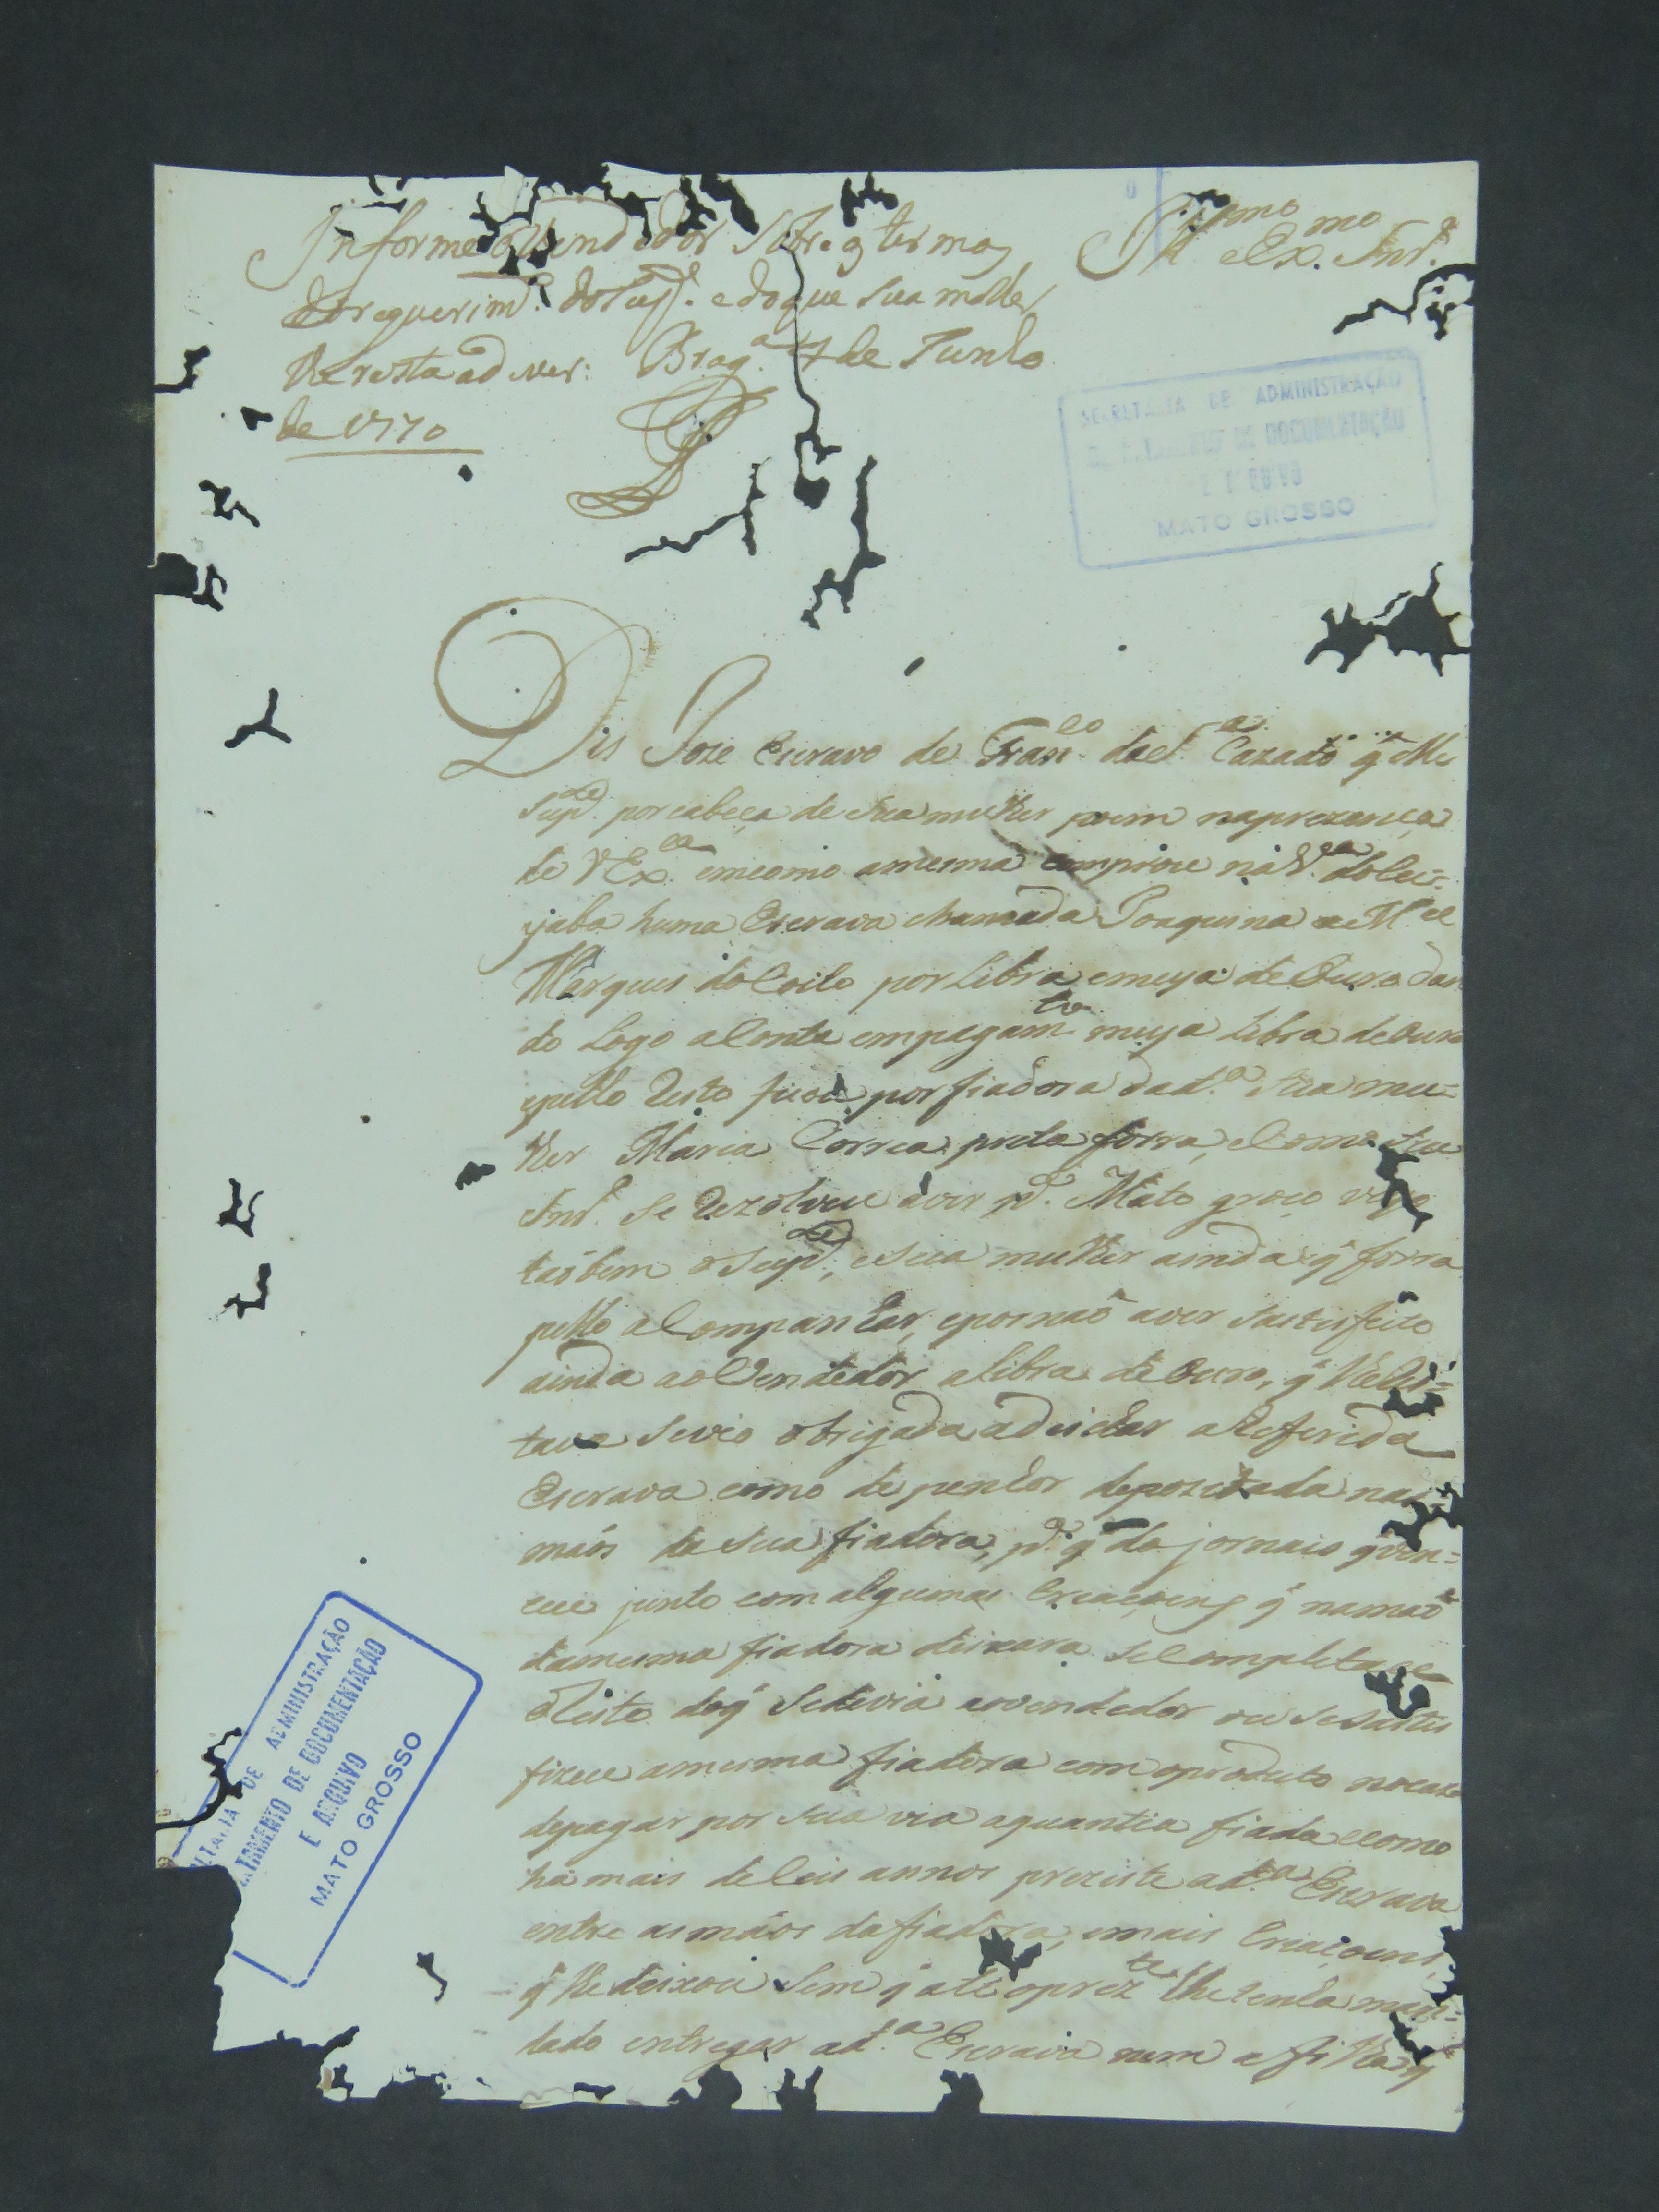 Informe o Vendedor Sobre os termos
do requerim.to do Sup.e e do que Sua molher
lhe resta a dever: Brag.a 17 de Junho
de 1770
Ill.mo e Ex.mo Snr.
SECRETARIA DE ADMINISTRAÇÃO
DE DOCUMENTAÇÃO
MATO GROSSO
Dis Joze Escravo de Fran.co da S.a Cazado q̃
Sup.e por cabeça de Sua mulher poem na prezença
de V Ex.ca em como a mesma comprou na V.a do Cui-
yaba huma Escrava chamada Joaquina a M.el
Marques do Coito por Libra emeya de Ouro dan
do Logo a Conta em pagam.to meya Libra de Ouro
epello Resto ficou por fiadora da d.a Sua mu-
lher Maria Correa preta forra, e Como Seu
Snr. Se Rezolveu a vir p.a Mato groço veyo
taõbem o Sup.e, e Sua mulher ainda q̃ forra
pello aCompanhar, epor naõ aver Sastisfeito
ainda ao Vendedor a Libra de Ouro, q̃ lhe
tava Sevio obrigada a deichar a Referida
Escrava como de penhor depozitada nas
mãos de Sua fiadora, p.a q̃ do jornais q̃ ven=
cece junto com algumas Criaçoens q̃ na maõ
da mesma fiadora deixara Se Completace
o Resto do q̃ Se devia ao vendedor ou Se Sastis
fizece a mesma fiadora com o produto no cazo
de pagar por Sua via a quantia fiada e Como
ha mais de Seis annos preziste a d.a Escrava
entre as mãos da fiadora, e mais Criaçoens
q̃ lhe deixou Sem q̃ ate o prez.te lhe tenha man=
dado entregar a d.a Escrava nem a filha q̃
SECRETARIA DE ADMINISTRAÇÃO
DEPARTAMENTO DE DOCUMENTAÇÃO
E ARQUIVO
MATO GROSSO